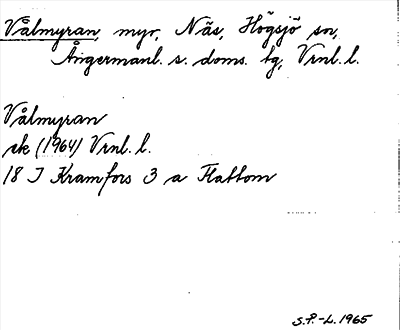 Vålmyran myr, Näs, Högsjö sn,
Ångermanl. s. doms. tg, Vrnl. l.
Vålmyran
ek (1964) Vrnl. l.
18 I Kramfors 3 a Flattom
S.P.-L. 1965